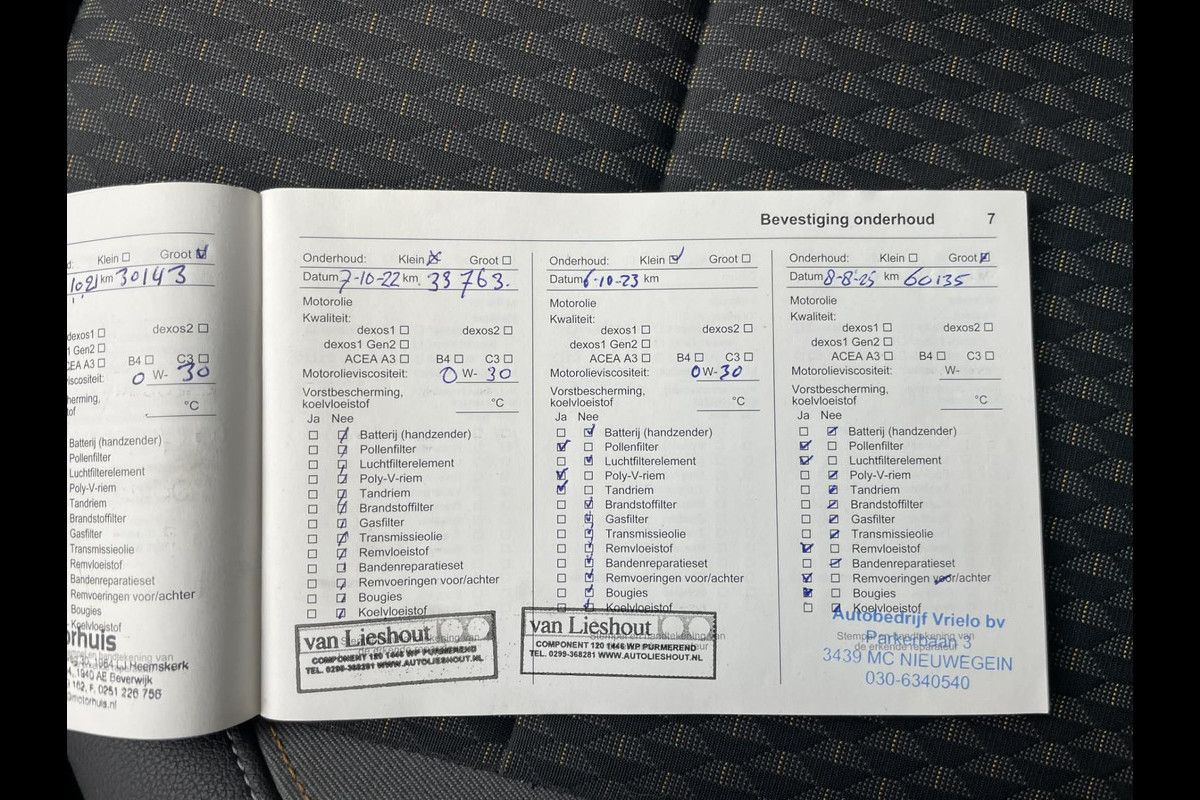 Bevestiging onderhoud 7
Klein ☐ Groot ☑
10 21 km 30143
dexos1 ☐ dexos2 ☐
1 Gen2 ☐
EA A3 ☐ B4 ☐ C3 ☐
iscositeit: 0 W- 30
herming,
tof °C
Batterij (handzender)
Pollenfilter
Luchtfilterelement
Poly-V-riem
Tandriem
Brandstoffilter
Gasfilter
Transmissieolie
Remvloeistof
Bandenreparatieset
Remvoeringen voor/achter
Bougies
Koelvloeistof
orhuis
Heemskerk
1940 AE Beverwijk
F. 0251 226 756
motorhuis.nl
Onderhoud: Klein ☒ Groot ☐
Datum 7-10-22 km 33763.
Motorolie
Kwaliteit:
dexos1 ☐ dexos2 ☐
dexos1 Gen2 ☐
ACEA A3 ☐ B4 ☐ C3 ☐
Motorolieviscositeit: 0 W- 30
Vorstbescherming,
koelvloeistof °C
Ja Nee
☐ ☑ Batterij (handzender)
☐ ☑ Pollenfilter
☐ ☑ Luchtfilterelement
☐ ☑ Poly-V-riem
☐ ☑ Tandriem
☐ ☑ Brandstoffilter
☐ ☑ Gasfilter
☐ ☑ Transmissieolie
☐ ☑ Remvloeistof
☐ ☑ Bandenreparatieset
☐ ☑ Remvoeringen voor/achter
☐ ☑ Bougies
☐ ☑ Koelvloeistof
van Lieshout
COMPONENT 120 1446 WP PURMEREND
TEL. 0299-368281 WWW.AUTOLIESHOUT.NL
Onderhoud: Klein ☑ Groot ☐
Datum 6-10-23 km
Motorolie
Kwaliteit:
dexos1 ☐ dexos2 ☐
dexos1 Gen2 ☐
ACEA A3 ☐ B4 ☐ C3 ☐
Motorolieviscositeit: 0 W- 30
Vorstbescherming,
koelvloeistof °C
Ja Nee
☐ ☑ Batterij (handzender)
☑ ☐ Pollenfilter
☐ ☑ Luchtfilterelement
☑ ☐ Poly-V-riem
☑ ☐ Tandriem
☐ ☑ Brandstoffilter
☐ ☑ Gasfilter
☐ ☑ Transmissieolie
☐ ☑ Remvloeistof
☐ ☑ Bandenreparatieset
☐ ☑ Remvoeringen voor/achter
☐ ☑ Bougies
☐ ☑ Koelvloeistof
van Lieshout
Stempel en handtekening van
COMPONENT 120 1446 WP PURMEREND
TEL. 0299-368281 WWW.AUTOLIESHOUT.NL
Onderhoud: Klein ☐ Groot ☑
Datum 8-8-25 km 60135
Motorolie
Kwaliteit:
dexos1 ☐ dexos2 ☐
dexos1 Gen2 ☐
ACEA A3 ☐ B4 ☐ C3 ☐
Motorolieviscositeit: W-
Vorstbescherming,
koelvloeistof °C
Ja Nee
☐ ☑ Batterij (handzender)
☑ ☐ Pollenfilter
☑ ☐ Luchtfilterelement
☐ ☑ Poly-V-riem
☐ ☑ Tandriem
☐ ☑ Brandstoffilter
☐ ☑ Gasfilter
☐ ☑ Transmissieolie
☑ ☐ Remvloeistof
☐ ☑ Bandenreparatieset
☑ ☐ Remvoeringen voor/achter
☑ ☐ Bougies
☐ ☑ Koelvloeistof
Autobedrijf Vrielo bv
Stempel en handtekening van
Parkerbaan 3
de erkende reparateur
3439 MC NIEUWEGEIN
030-6340540